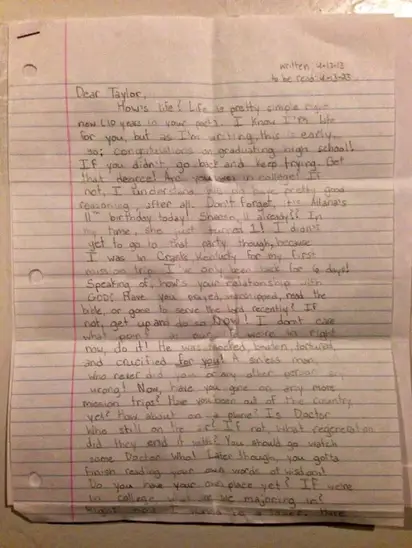 written; 4-13-13
to be read: 4-13-23
Dear Taylor,
How's life? Life is pretty simple right
now (10 years in your past). I know I'm late
for you, but as I'm writing, this is early,
so; congratulations on graduating high school!
If you didn't, go back and keep trying. Get
that degree! Are you in college? If
not, I understand have pretty good
reasoning, after all. Don't forget, it's Allana's
11th birthday today! Sheesh, 11 already?! In
my time, she just turned 1! I didn't
get to go to that party though, because
I was in Kentucky for my first
mission trip. I've only been back for 6 days!
Speaking of, how's your relationship with
GOD? Have you prayed, worshipped, read the
bible, or gone to serve the lord recently? If
not, get up and do so NOW! I don't care
what point in our life we're in right
now, do it! He was mocked, beaten, tortured,
and crucified for you! A sinless man,
who never did you or any other person any
wrong! Now, have you gone on any more
mission trips? Have you been out of the country
yet? How about on a plane? Is Doctor
Who still on the air? If not, what regeneration
did they end it with? You should go watch
some Doctor Who! Later though, you gotta
finish reading your own words of wisdom!
Do you have your own place yet? If we're
in college what are we majoring in?
Right now I